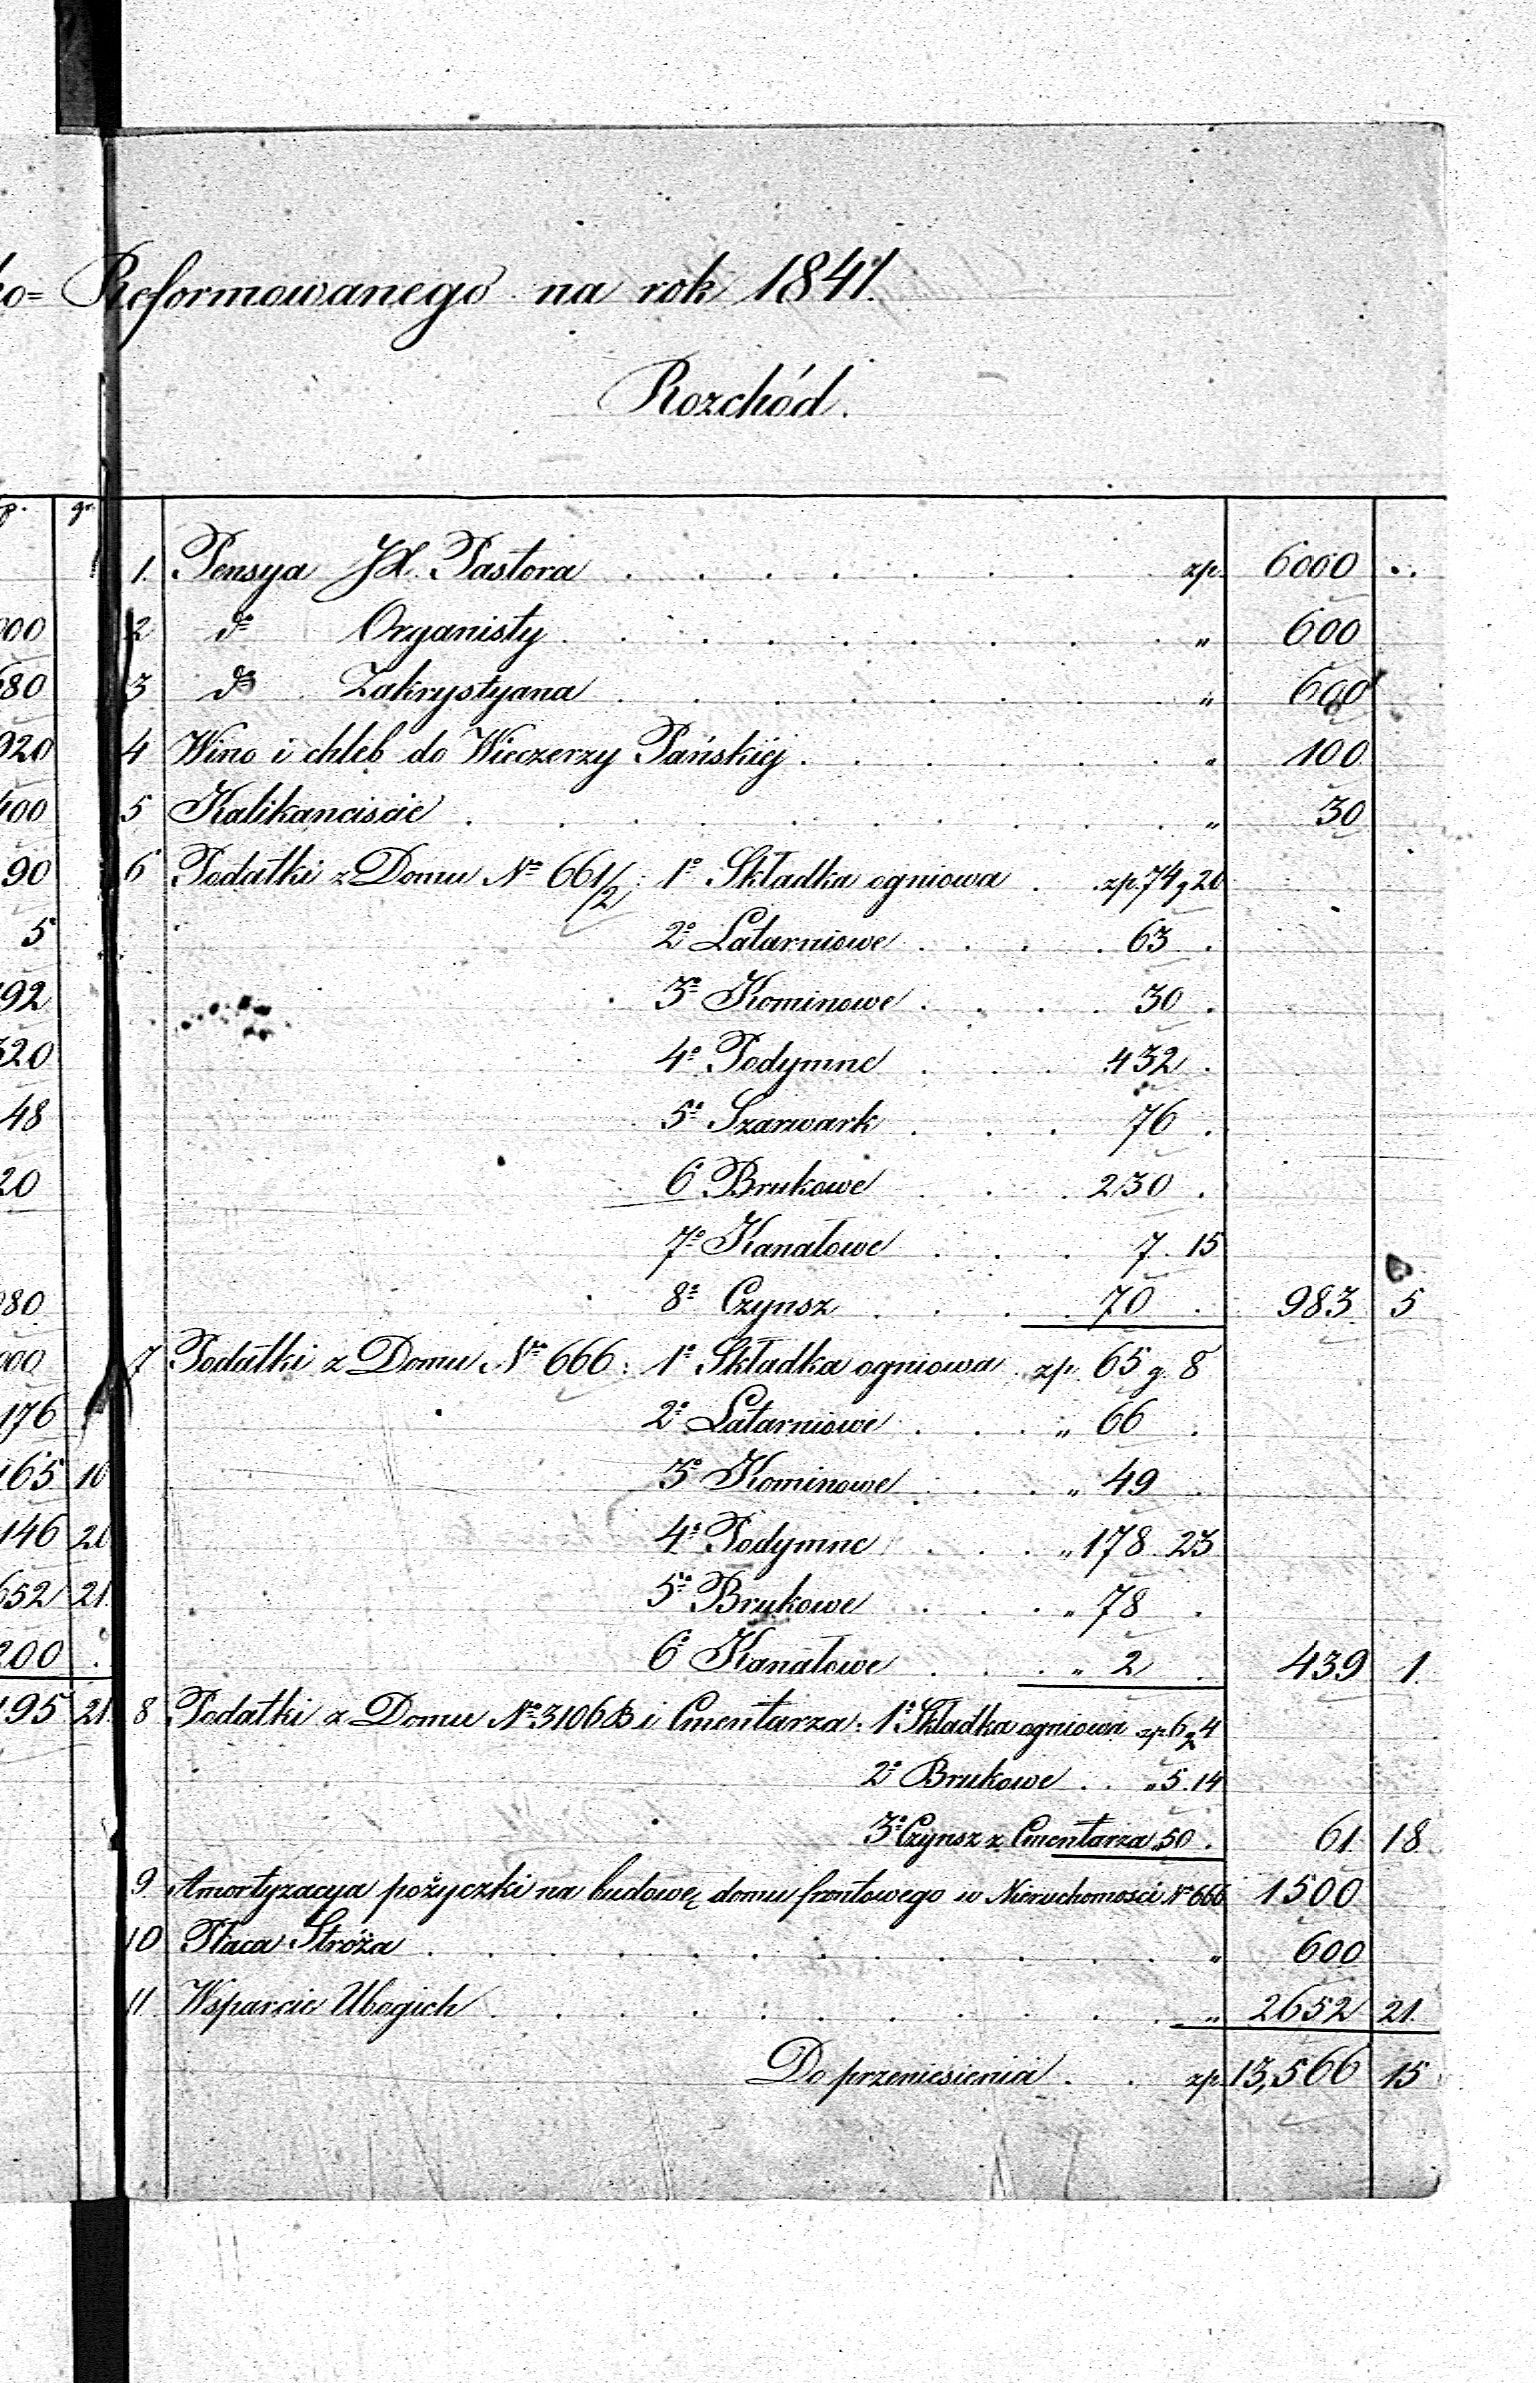 ko= Reformowanego na rok 1841.
Rozchód.
gr.
1. Pensya JX. Pastora . . . . . . . zp. 6000 ..
2 do Organisty . . . . . . . . " 600
3 do Zakrystyana . . . . . . . " 600
4 Wino i chleb do Wieczerzy Pańskiéj . . . . . . " 100
5 Kalikanciście . . . . . . . . . " 30
6 Podatki z Domu No 661/2 : 1o Składka ogniowa . zp. 74 g 20
2o Latarniowe . . . 63 .
3o Kominowe . . . 30 .
4o Podymne . . . 432 .
5o Szarwark . . . 76 .
6o Brukowe . . . 230 .
7o Kanałowe . . . 7. 15
8o Czynsz . . . 70 . 983 5
7 Podatki z Domu No 666 : 1o Składka ogniowa . zp. 65 g. 8
2o Latarniowe . . . " 66 .
3o Kominowe . . . " 49 .
4o Podymne . . . " 178 . 23
5o Brukowe . . . " 78 .
6o Kanałowe . . . " 2 . 439 1.
8 Podatki z Domu No 3106B i Cmentarza : 1o Składka ogniowa zp 6 g 4
2o Brukowe . . " 5. 14
3o Czynsz z Cmentarza " 50 . 61 18
9 Amortyzacya pożyczki na budowę domu frontowego w Nieruchomości No 666 1500
10 Płaca Stróża . . . . . . . . . . " 600
11 Wsparcie Ubogich . . . . . . . . " 2652 21.
Do przeniesienia . . zp. 13,566 15